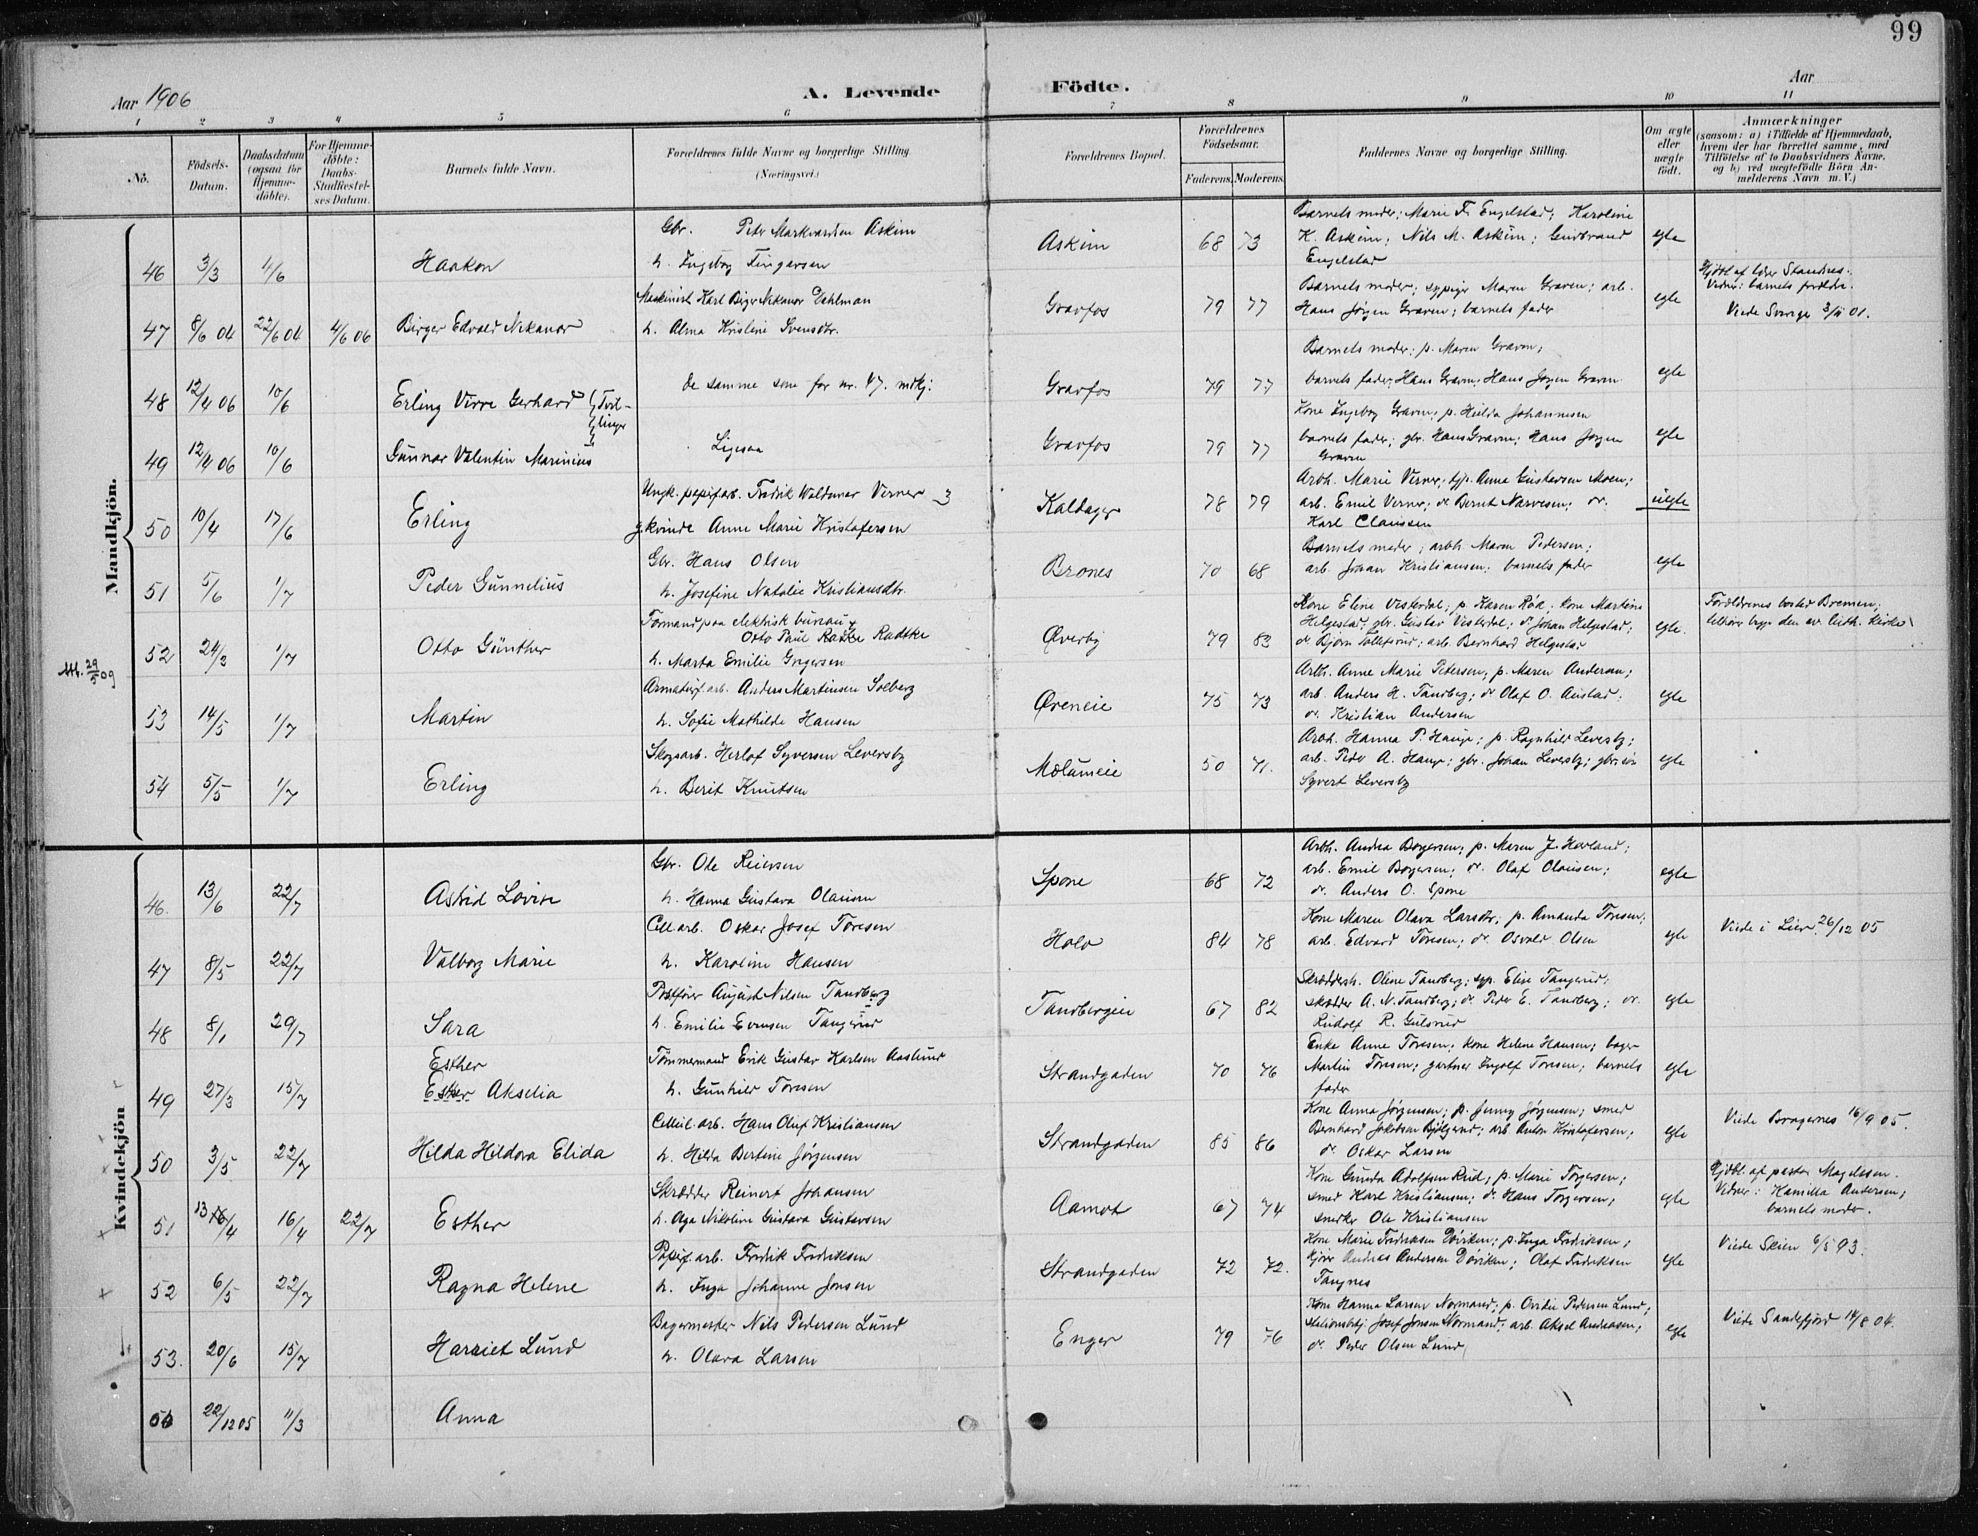 99
Aar 1906 A. Levende Födte. Aar
1 2 3 4 5 6 7 8 9 10 11
No. Födsels-Datum. Daabsdatum (ogsaa for Hjemme-döbte). For Hjemme-döbte: Daabs-Stadfæstel-ses Datum. Barnets fulde Navn. Forældrenes fulde Navne og borgerlige Stilling (Næringsvei.) Forældrenes Bopæl. Forældrenes Födselsaar. Faderens. Moderens. Faddernes Navne og borgerlige Stilling. Om ægte eller uægte födt. Anmærkninger (saasom: a) i Tilfælde af Hjemmedaab, hvem der har forrettet samme, med Tilföielse af to Daabsvidners Navne, og b) ved uægtefödte Börn An-melderens Navn m. V.)
Mandkjön.
Gbr. Peter Markvardsen Askim
Barnets moder; Marie Fr. Engelstad; Karoline
46 3/3 4/6 Haakon h. Ingeborg Fingarsen Askim 68 73 K. Askim; Nils M. Askim; Gudbrand egte
Engelstad
Maskinist Karl Birger Nikanor Dahlman
Barnets moder; sypige Maren Graven; arb.
Hjdbt. af lærer Standnes.
Vidner: barnets forældre.
47 8/6 04 22/6 04 4/6 06 Birger Edvald Nikanor h. Alma Kristine Svensdtr. Gravfos 79 77 Hans Jørgen Graven; barnets fader egte Viede Sverige 3/11 01.
Barnets moder; p. Maren Graven;
48 12/4 06 10/6 Erling Virre Gerhard (Tvil-linger De samme som for nr. 47. mdkj: Gravfos 79 77 barnets fader; Hans Graven; Hans Jørgen Graven egte
Kone Ingeborg Graven; p. Hilda Johannesen
49 12/4 06 10/6 Gunnar Valentin Marinius Ligesaa Gravfos 79 77 barnets fader; gbr. Hans Graven; Hans Jørgen egte
Graven
Ungk. papirfarb. Fredrik Waldemar Verner
Arbh. Marie Verner; syp. Anna Gustavsen Moen;
50 10/4 17/6 Erling gkvinde Anne Marie Kristofersen Kaldager 78 79 arb. Emil Verner; do Bernt Narvesen; do. uegte
Karl Claussen
Gbr. Hans Olsen
Barnets moder; arbh. Maren Pedersen;
51 5/6 1/7 Peder Gunnelius h. Josefine Natalie Kristiansdtr. Brones 70 68 arb. Johan Kristiansen; barnets fader egte
Formand paa elektrisk bureau
Otto Paul Radtke
Kone Eline Vesterdal; p. Karen Röd; kone Martine
Forældrenes bosted Bremen;
Utt. 29/5 09 52 24/3 1/7 Otto Günther h. Marta Emilie Yngersen Øverby 79 83 Helgestad; gbr. Gustav Vesterdal; do Johan Helgestad; egte.
do Bjørn Tollefsrud; arb. Bernhard Helgestad
Armaturf. arb. Anders Martinsen Solberg
Arbh. Anne Marie Petersen; p. Maren Andersen;
53 14/5 1/7 Martin h. Sofie Mathilde Hansen Øreneie 75 73 arb. Anders H. Tandberg; do Olaf O. Austad; egte
do. Kristian Andersen
Skogsarb. Herlof Syversen Leversby
Arbh. Hanna P. Hauge; p. Ragnhild Leversby;
54 5/5 1/7 Erling h. Berit Knutsen Mælumeie 50 71. arb. Peder A. Hauge; gbr. Johan Leversby; egte
Syvert Leversby
Kvindekjön
Gbr. Ole Reiersen
Arbh. Andrea Borgersen; p. Maren J. Hovland;
46. 13/6 22/7 Astrid Lovise h. Hanna Gustava Olausen Spone 68 72 arb. Emil Borgersen; do. Olaf Olausen; egte
do. Anders O. Spone
Cell arb. Oskar Josef Toresen
Kone Maren Olava Larsdtr; p. Amanda Toresen;
47 8/5 22/7 Valborg Marie h. Karoline Hansen Holo 84 78 arb. Edvard Toresen; do. Osvald Olsen egte Viede i Lier. 26/12 05
Postfører August Nilsen Tandberg
Skræddersk. Oline Tandberg; syp. Elise Tangerud;
48 8/1 29/7 Sara h. Emilie Evensen Tangerud Tandbergeie 67 82 skrædder A. N. Tandberg; do. Peder E. Tandberg; do. egte
Rudolf R. Gulsrud
Esther
Tömmermand Erik Gustav Karlsen Aaslund
Enke Anne Toresen; kone Helene Hansen; bager
49 27/3 15/7 Esther Akselia h. Gunhild Toresen Strandgaden 70 76 Martin Toresen; gartner Ingolf Toresen; barnets egte
fader
Cellul. arb. Hans Oluf Kristiansen
Kone Anna Jørgensen; p. Jenny Jørgensen; smed
50 3/5 22/7 Hilda Hildora Elida h. Hilda Bertine Jørgensen Strandgaden 85 86 Bernhard Jakobsen; arb. Anton Kristofersen; egte Viede Bragernes 16/9 05.
do. Oskar Larsen
Skrædder Reinert Johansen
Kone Gunda Adolfsen Rud; p. Marie Torgersen;
Hjdbt. af pastor Magelssen.
51 13/4 16/4 22/7 Esther h. Aga Nikoline Gustava Gustavsen Aamot 67 74 smed Karl Kristiansen; do. Hans Torgersen; egte Vidner: Hamilla Andersen;
snedker Ole Kristiansen barnets moder.
Papirf. arb. Fredrik Fredriksen
Kone Marie Fredriksen Döviken; p. Inga Fredriksen;
Viede Skien 6/5 93.
52 6/5 22/7 Ragna Helene h. Inga Johanne Jonsen Strandgaden 72 72. Andreas Andersen Döviken; Olaf Fredriksen egte
Tangnes
Bagermester Nils Pedersen Lund
Kone Hanna Larsen Normand; p. Ovidie Pedersen Lund;
53. 20/6 15/7 Harriet Lund h. Olava Larsen Enger 79 76 Josef Jonsen Normand; arb. Aksel Andreasen; egte Viede Sandefjord 14/8 04.
do. Peder Olsen Lund
22/12 05 11/3 Anna